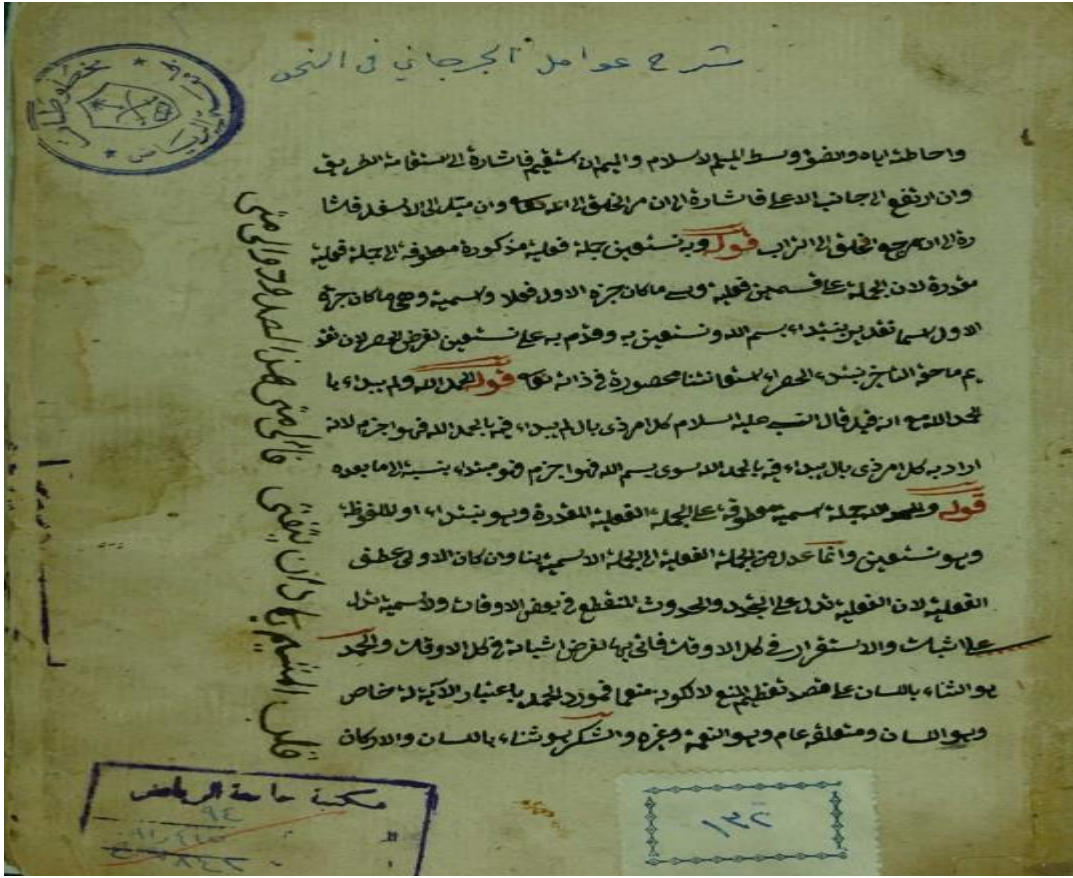 شرح عوامل الجرجاني في النحو
واحاطته اياه والضوء وسط الميم الاسلام والميم ان ستقيم فاشارة الى استقامة الطريق
وان ارتفع الى جانب الاعلى فاشارة الى ان مرالخلق الى الله تعالى وان ميل الى الاسفل فاشا
رة الى ان مرجع الخلق الى التراب قوله وبه نستعين جملة فعلية مذكورة معطوفة الى جملة فعلية
مقدرة لان الجملة على قسمين فعلية وهي ماكان جزءه الاول فعلا واسمية وهي ماكان جزءه
الاول اسما تقديره نبتداء بسم الله ونستعين به وقدم به على نستعين لغرض الحصر لان تقد
يم ماحقه التاخير يفيد الحصر اي استعانتنا محصورة في ذاته تعالى قوله الحمد لله ولم يبداء با
لحمد لله مع انه قيل قال النبي عليه السلام كل امر ذى بال لم يبداء فيه بالحمد لله فهو اجزم لانه
اراد به كل امر ذى بال لم يبداء فيه بالحمد لله سوى بسم الله فهو اجزم فهو مبتداء بنسبة الى ما بعده
قوله والحمد لله جملة اسمية معطوفة على الجملة الفعلية المقدرة وهو نبتداء او الملفوظة
وهو نستعين وانما عدل من الجملة الفعلية الى الجملة الاسمية هنا وان كان الاولى عطف
الفعلية لان الفعلية تدل على التجدد والحدوث المنقطع في بعض الاوقات والاسمية تدل
على اثبات والاستقرار في كل الاوقات فاتى بها لغرض اثباته في كل الاوقات والحمد
هو الثناء باللسان على قصد تعظيم المنعم لالكونه منعما فمورد الحمد باعتبار الآلية له خاص
وهو اللسان ومتعلقه عام وهو النعمة وغيره والشكر هو ثناء باللسان والاركان
فالى متى هذا الصدود والى متى
مخطوطات
الرياض
مكتبة جامعة الرياض
٩٤
١٣٢